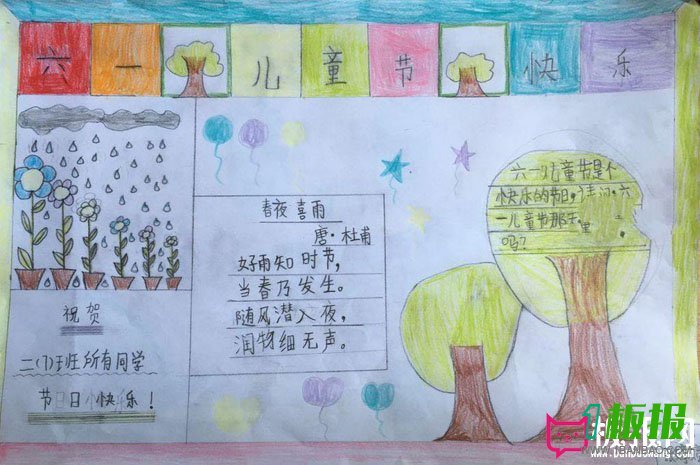 六一儿童节快乐
春夜喜雨
唐·杜甫
好雨知时节，
当春乃发生。
随风潜入夜，
润物细无声。
六一儿童节是个
快乐的节日，
六
一儿童节那天
里
吗？
祝贺
二(7)班所有同学
节日快乐！
板报